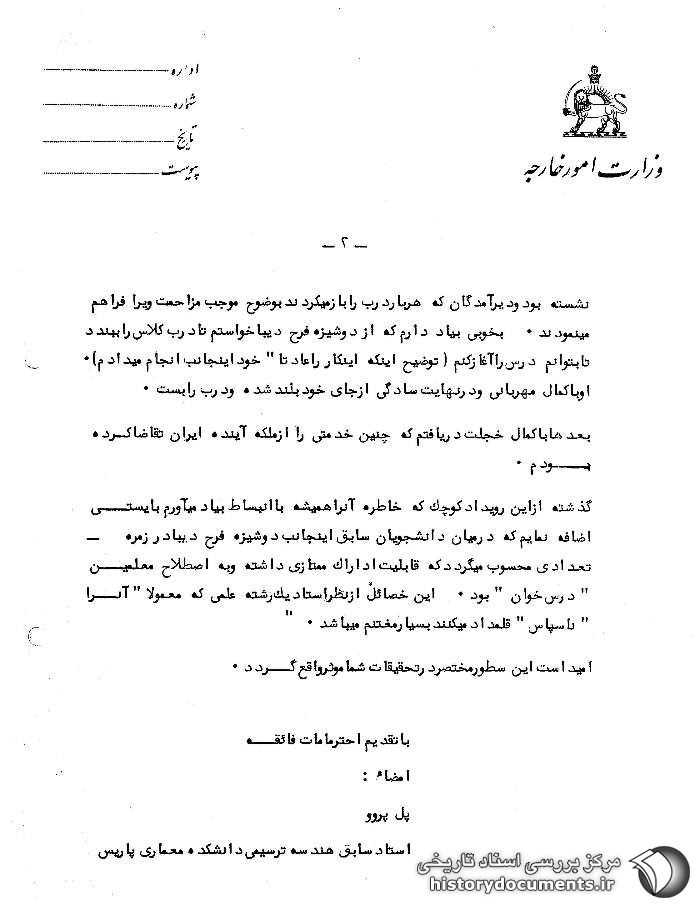 اداره
شماره
تاریخ
پیوست
وزارت امور خارجه
ـ ۲ ـ
نشسته بود ودیرآمدگان که هربار درب را بازمیکردند بوضوح موجب مزاحمت ویرا فراهم
مینمودند ۰ بخوبی بیاد دارم که از دوشیزه فرح دیبا خواستم تا درب کلاس را ببندد
تا بتوانم درس را آغازکنم ( توضیح اینکه اینکار را عادتا " خود اینجانب انجام میدادم) ۰
او باکمال مهربانی ودرنهایت سادگی ازجای خود بلند شده ودرب رابست ۰
بعدها باکمال خجلت دریافتم که چنین خدمتی را ازملکه آینده ایران تقاضاکرده
بـــودم ۰
گذشته ازاین رویداد کوچك که خاطره آنرا همیشه با انبساط بیاد میآورم بایستـــی
اضافه نمایم که درمیان دانشجویان سابق اینجانب دوشیزه فرح دیبا در زمره ـ
تعدادی محسوب میگردد که قابلیت ادراك ممتازی داشته وبه اصطلاح معلمیـــن
" درس خوان " بود ۰ این خصائل ازنظراستاد یك رشته علمی که معمولا " آنـــرا
" ناسپاس " قلمداد میکنند بسیار مغتنم میباشد ۰ "
امید است این سطور مختصر درتحقیقات شما موثر واقع گـــردد ۰
با تقدیم احترامات فائقـــه
امضاء :
پل پروو
استاد سابق هندسه ترسیمی دانشکده معماری پاریس
مرکز بررسی اسناد تاریخی
historydocuments.ir